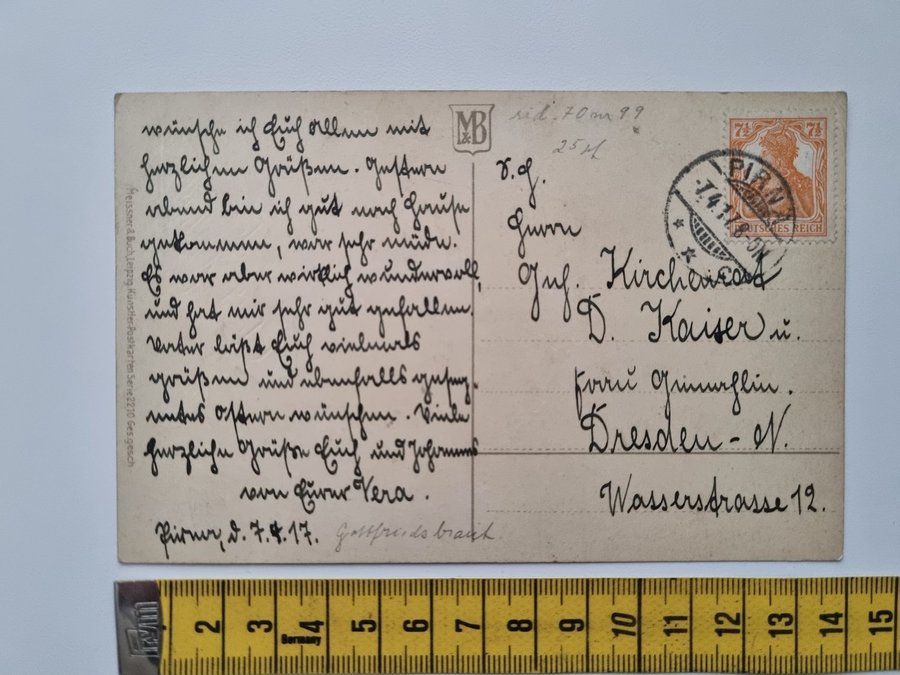 wünsche ich Euch Allen mit
herzlichen Grüßen. Gestern
abend bin ich gut nach Hause
gekommen, war sehr müde.
Es war aber wirklich wundervoll,
und hat mir sehr gut gefallen.
Vater läßt Euch vielmals
grüßen und ebenfalls geseg-
netes Ostern wünschen. Viele
herzliche Grüße Euch und Johannes
von Eurer Vera.
Pirna, d. 7.4.17.
Gottfriedsbraut
Meissner & Buch, Leipzig. Künstler-Postkarten Serie 2210 Ges. gesch
M&B
7½ 7½
DEUTSCHES REICH
PIRNA
7.4.17
S. H.
Herrn
Geh. Kirchenrat
D. Kaiser u.
Frau Gemahlin.
Dresden-N.
Wasserstrasse 12.
2 3 4 5 6 7 8 9 10 11 12 13 14 15
Germany